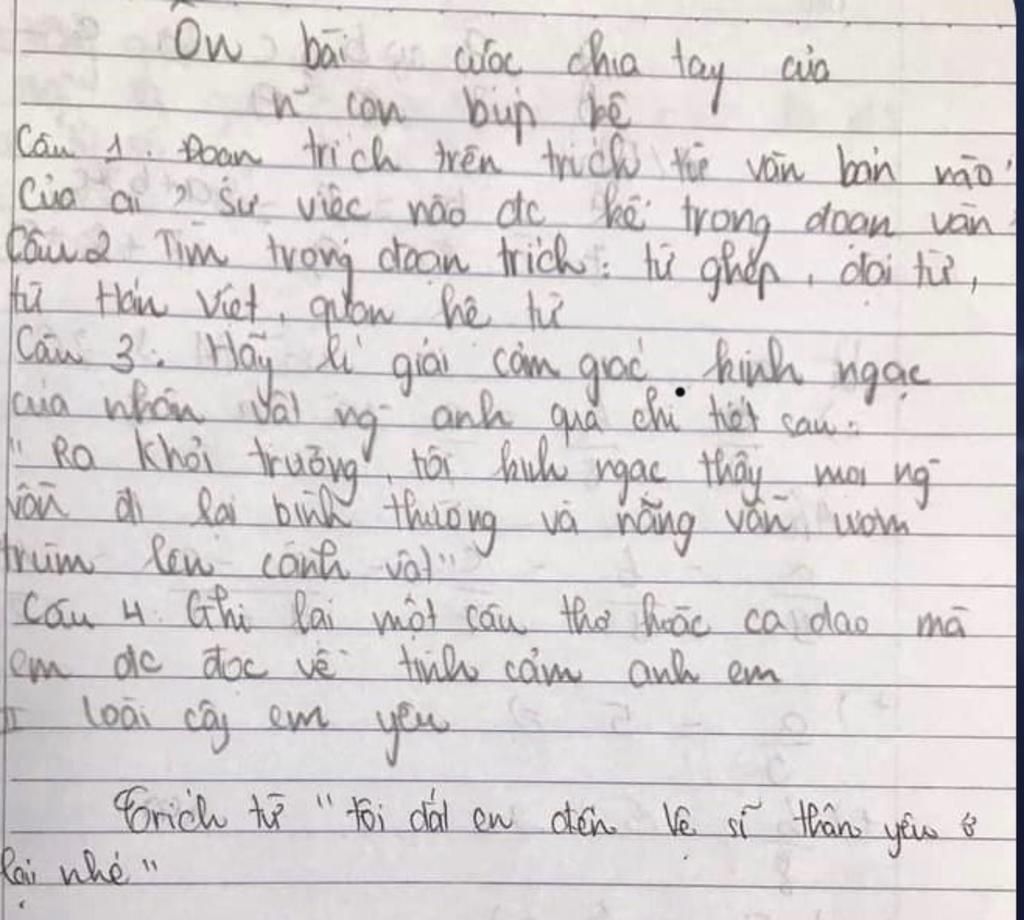 Ôn bài cuộc chia tay của
n~ con búp bê
Câu 1. Đoạn trích trên trích từ văn bản nào
Của ai, Sự việc nào đc kể trong đoạn văn
Câu 2 Tìm trong đoạn trích: từ ghép, đại từ,
từ Hán Việt, quan hệ từ
Câu 3. Hãy lí giải cảm giác kinh ngạc
của nhân vật ng~ anh qua chi tiết sau:
"Ra khỏi trường, tôi kinh ngạc thấy mọi ng~
vẫn đi lại bình thường và nắng vẫn ươm
trùm lên cảnh vật"
Câu 4. Ghi lại một câu thơ hoặc ca dao mà
em đc đọc về tình cảm anh em
II loài cây em yêu
Trích từ "tôi dắt em đến Vệ sĩ thân yêu ở
lại nhé"